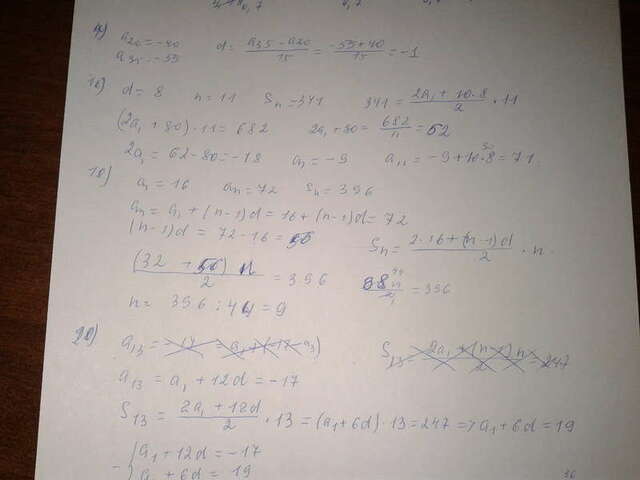 a₂₀ = -40   d = (a₃₅ - a₂₀)/15 = (-55+40)/15 = -1
a₃₅ = -55
16) d = 8   n = 11   Sn = 341   341 = (2a₁ + 10·8)/2 · 11
(2a₁ + 80)·11 = 682   2a₁ + 80 = 682/11 = 62
2a₁ = 62-80 = -18   a₁ = -9   a₁₁ = -9 + 10·8 = 71
18) a₁ = 16   an = 72   Sn = 396
an = a₁ + (n-1)d = 16 + (n-1)d = 72
(n-1)d = 72-16 = 56   Sn = (2·16 + (n-1)d)/2 · n
(32 + 56) n/2 = 396   88n/2 = 396
n = 396 : 44 = 9
20) a₁₃ = -17
S₁₃ = (2a₁ + (n-1)n)/2 = 247
a₁₃ = a₁ + 12d = -17
S₁₃ = (2a₁ + 12d)/2 · 13 = (a₁ + 6d)·13 = 247 => a₁ + 6d = 19
- { a₁ + 12d = -17
a₁ + 6d = 19
36